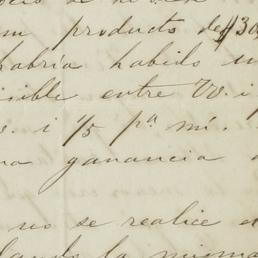 un producto de $30
habria habido un
sible entre W. i
s. i 1/5 pa. mí.
na ganancia
no se realice
lando la misma